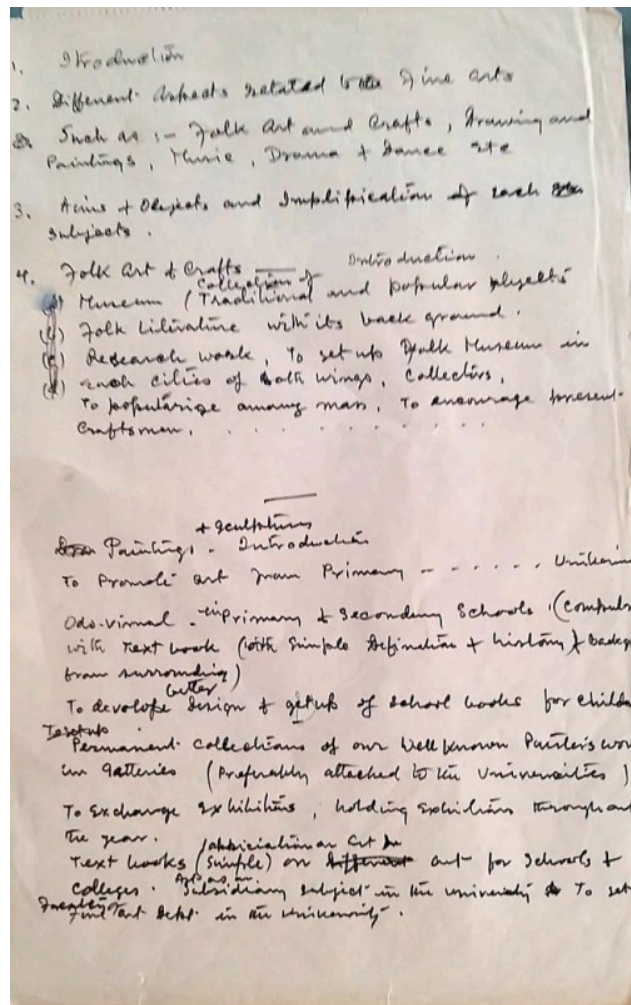 1. Itroduction
2. Different Aspects related to the Fine arts
Such as :- Folk Art and Crafts, Drawing and
Paintings, Music, Drama + Dance etc
3. Aims + Objects and Implification of each
subjects.
4. Folk Art & Crafts — Introduction.
Collection of
Museum (Traditional and popular objects
Folk Literature with its back ground.
Research work, To set up Folk Museum in
each cities of both wings, Collectors,
To popularize among mass, To encourage present
Craftsmen. . . . . . . . . . .
+ Sculptures
Paintings. Introduction
To Promote art from Primary - - . . . .
Odo-visual - in Primary & Secondary Schools. (
with Text book (with Simple Definition + history)
from surrounding)
better
To develope Design & getup of school books for
To setup
Permanent Collections of our well known Painters
in galleries (Preferably attached to the Universities)
To Exchange exhibitions, holding exhibitions
the year.
appriciation Art
Text books (Simple) on Different art for Schools &
Colleges. Subsidiary subject in the university To set
Fine Art Dept. in the University.